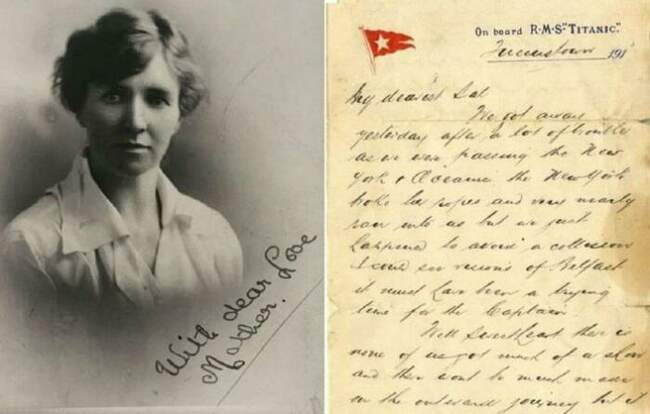 With dear Love
Mother.
On board R·M·S "TITANIC."
Queenstown 191
My dearest Sal
We got away
yesterday after a lot of trouble
as we were passing the New
York & Oceanic the New York
broke her ropes and very nearly
ran into us but we just
happened to avoid a
I could see visions of Belfast
it must have been a trying
time for the Captain
Well Sweetheart there is
none of us got much of a show
and there wont be much made
on the outward journey but it